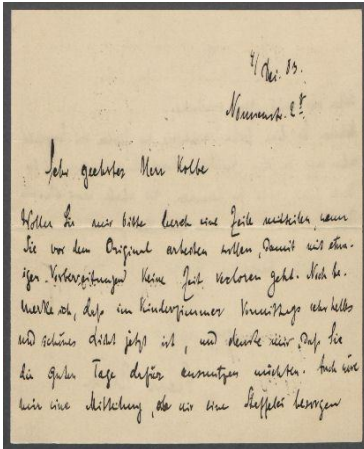 4/Dez. 83.
Nonnenstr. 8
Sehr geehrter Herr Kolbe
Wollen Sie mir bitte durch eine Zeile mitteilen, wann
Sie vor dem Original arbeiten wollen, damit mit etwa-
igen Vorbereitungen keine Zeit verloren geht. Noch be-
merke ich, daß im Kinderzimmer Vormittags sehr helles
und schönes Licht jetzt ist, und denke mir, daß Sie
die guten Tage dafür ausnutzen möchten. Auch wäre
mir eine Mitteilung, ob wir eine Staffelei besorgen